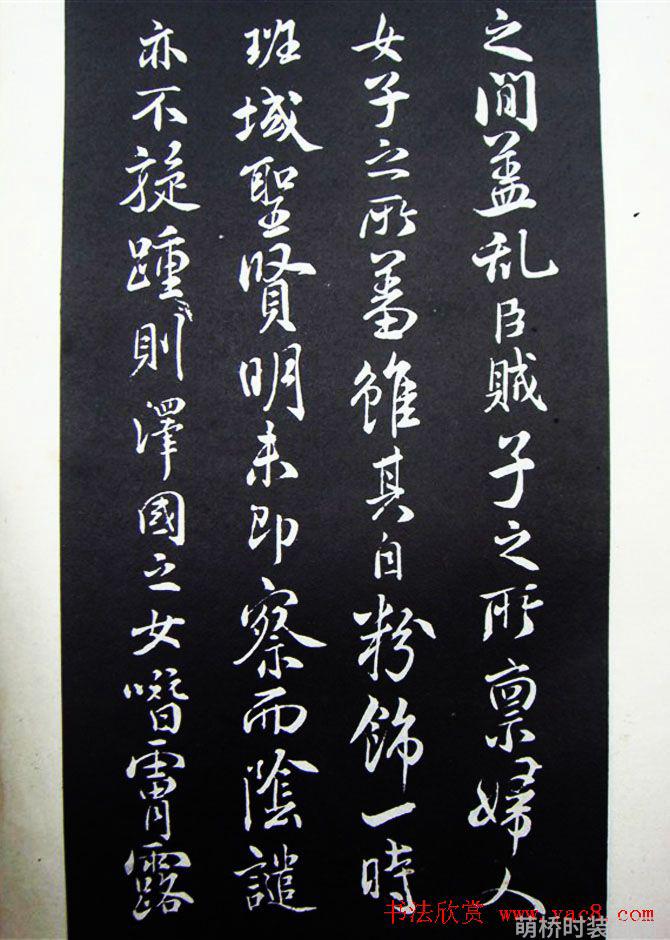 之間蓋乱臣賊子之所禀婦人
女子之所蓄雖其自粉飾一時
班域聖賢明未即察而陰譴
亦不旋踵則澤國之女噆膚露
书法欣赏 www.yac8.com
萌桥时装